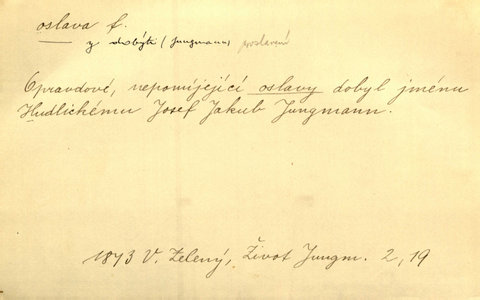 oslava f.
z dobýti (Jungmann) proslavení
Opravdové, nepomíjející oslavy dobyl jménu
Hudlickému Josef Jakub Jungmann.
1873 V. Zelený, Život Jungm. 2, 19